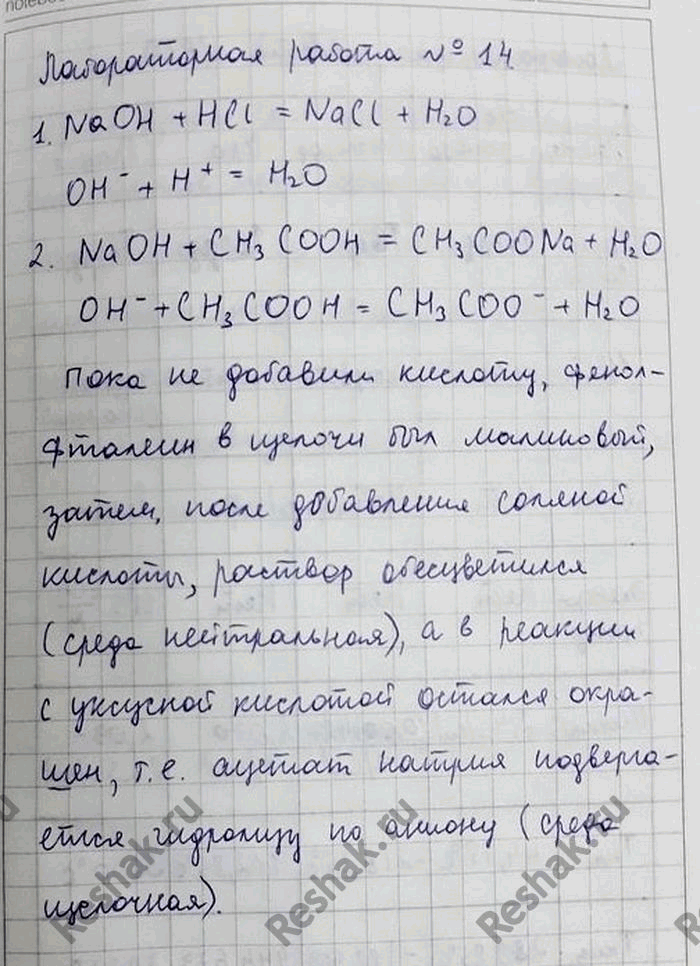 notebo
Лабораторная работа № 14
1. NaOH + HCl = NaCl + H₂O
OH⁻ + H⁺ = H₂O
2. NaOH + CH₃COOH = CH₃COONa + H₂O
OH⁻ + CH₃COOH = CH₃COO⁻ + H₂O
Пока не добавили кислоту, фенол-
фталеин в щелочи был малиновый,
затем, после добавления соляной
кислоты, раствор обесцветился
(среда нейтральная), а в реакции
с уксусной кислотой остался окра-
шен, т.е. ацетат натрия подверга-
ется гидролизу по аниону (среда
щелочная).
Reshak.ru
Reshak.ru
Reshak.ru